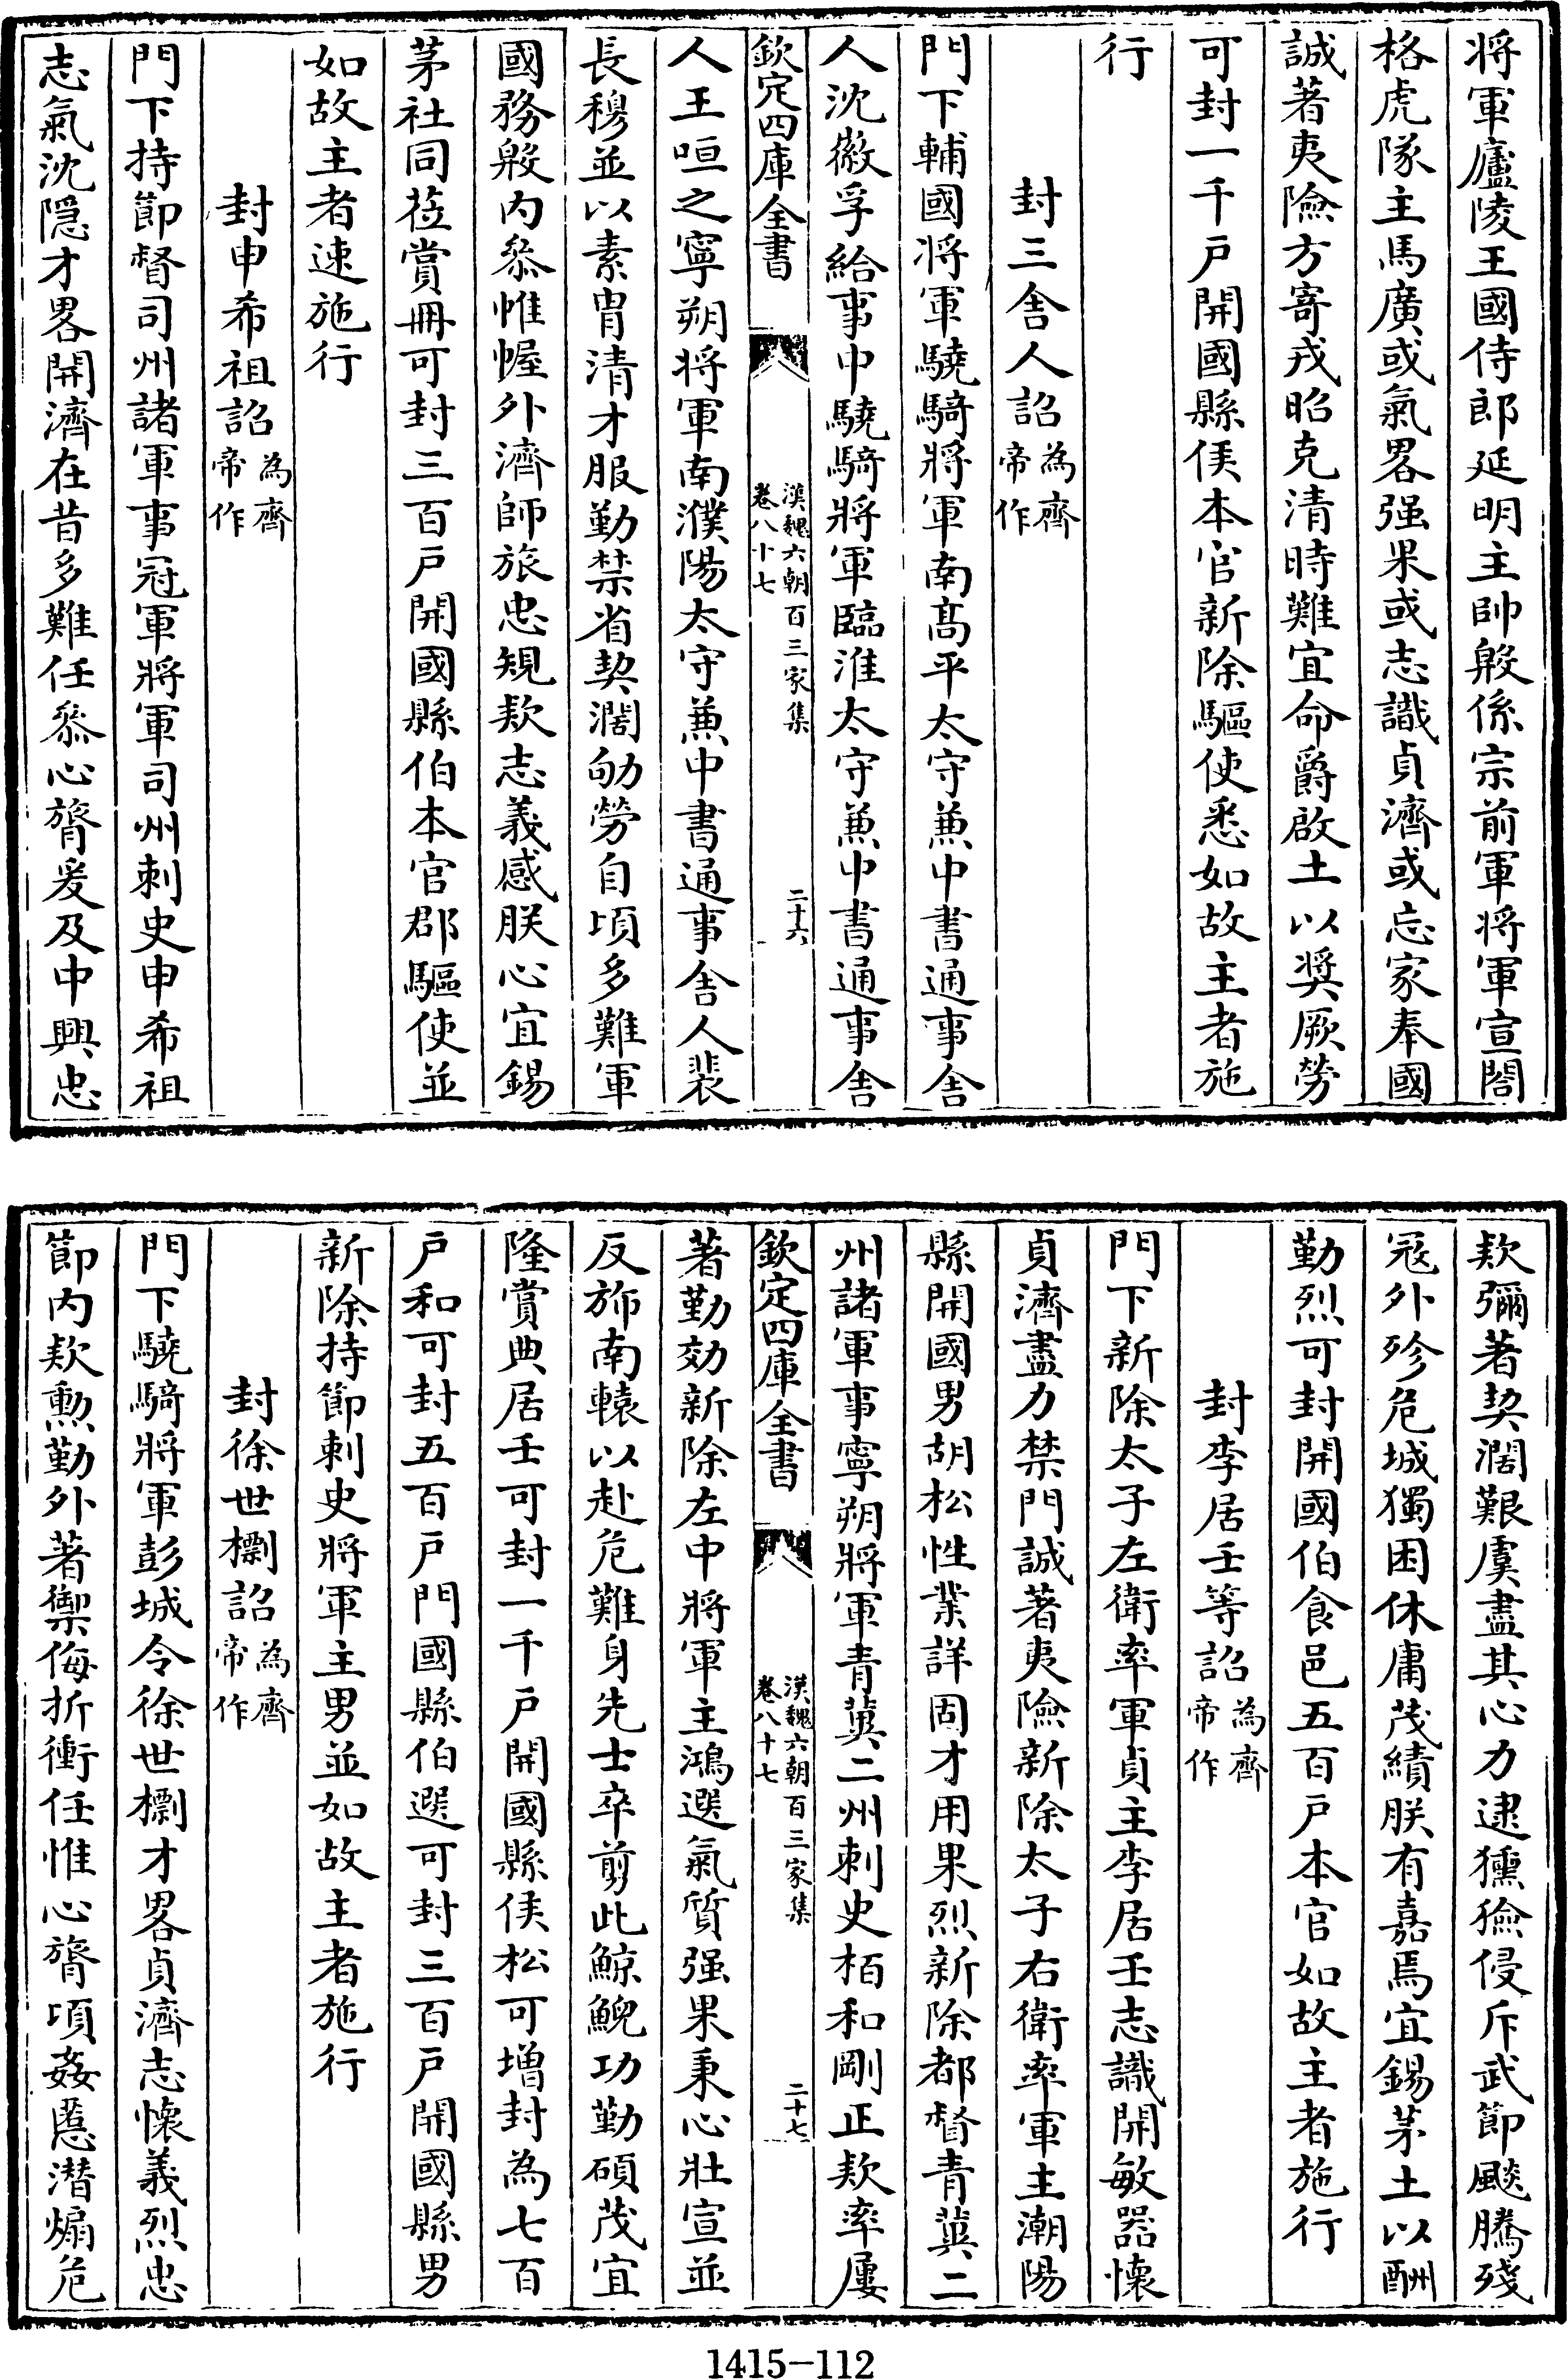 将軍廬陵王國侍郎延明主帥殷係宗前軍将軍宣閤
格虎隊主馬廣或氣畧强果或志識貞濟或忘家奉國
誠著夷險方寄戎昭克清時難宜命爵啟土以奨厥勞
可封一千戶開國縣侯本官新除驅使悉如故主者施
行
封三舍人詔為齊帝作
門下輔國将軍驍騎將軍南髙平太守兼中書通事舍
人沈徽孚給事中驍騎將軍臨淮太守兼中書通事舍
欽定四庫全書
漢魏六朝百三家集
卷八十七
二十六
人王咺之寧朔将軍南濮陽太守兼中書通事舍人裴
長穆並以素胄清才服勤禁省契濶劬勞自頃多難軍
國務殷内叅帷幄外濟師旅忠規欵志義感朕心宜錫
茅社同莅賞冊可封三百戶開國縣伯本官郡驅使並
如故主者速施行
封申希祖詔為齊帝作
門下持節督司州諸軍事冠軍將軍司州刺史申希祖
志氣沈隱才畧開濟在昔多難任叅心膂爰及中興忠
欵彌著契濶艱虞盡其心力逮獯獫侵斥武節飈騰殘
冦外殄危城獨固休庸茂績朕有嘉焉宜錫茅土以酬
勤烈可封開國伯食邑五百戶本官如故主者施行
封李居壬等詔為齊帝作
門下新除太子左衛率軍貞主李居壬志識開敏器懷
貞濟盡力禁門誠著夷險新除太子右衛率軍主潮陽
縣開國男胡松性業詳固才用果烈新除都督青冀二
州諸軍事寧朔將軍青冀二州刺史栢和剛正欵率屢
欽定四庫全書
漢魏六朝百三家集
卷八十七
二十七
著勤効新除左中將軍主鴻選氣質强果秉心壯宣並
反斾南轅以赴危難身先士卒剪此鯨鯢功勤碩茂宜
隆賞典居壬可封一千戶開國縣侯松可增封為七百
戶和可封五百戶門國縣伯選可封三百戶開國縣男
新除持節刺史將軍主男並如故主者施行
封徐世檦詔為齊帝作
門下驍騎將軍彭城令徐世檦才畧貞濟志懷義烈忠
節内欵勲勤外著禦侮折衝任惟心膂頃姦慝潛煽危
1415-112